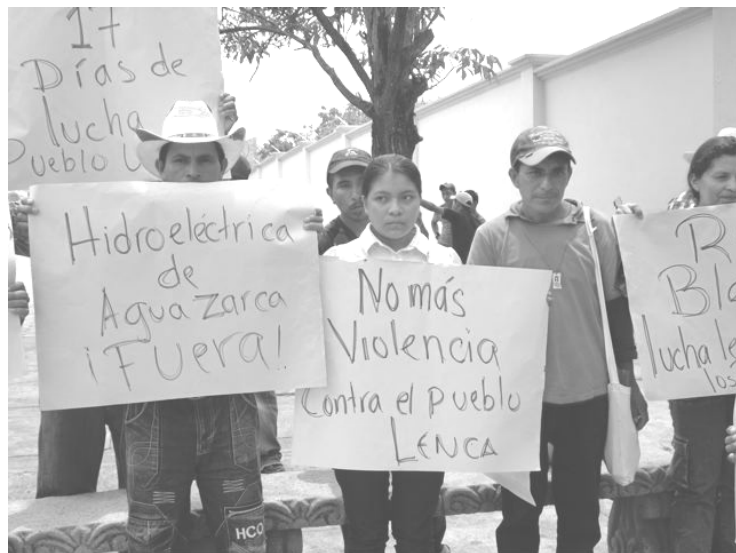 17
Días de
lucha
Pueblo
Hidroeléctrica
de
Aguazarca
¡Fuera!
No más
Violencia
Contra el pueblo
LENCA
R
Bla
lucha le
los
HCO